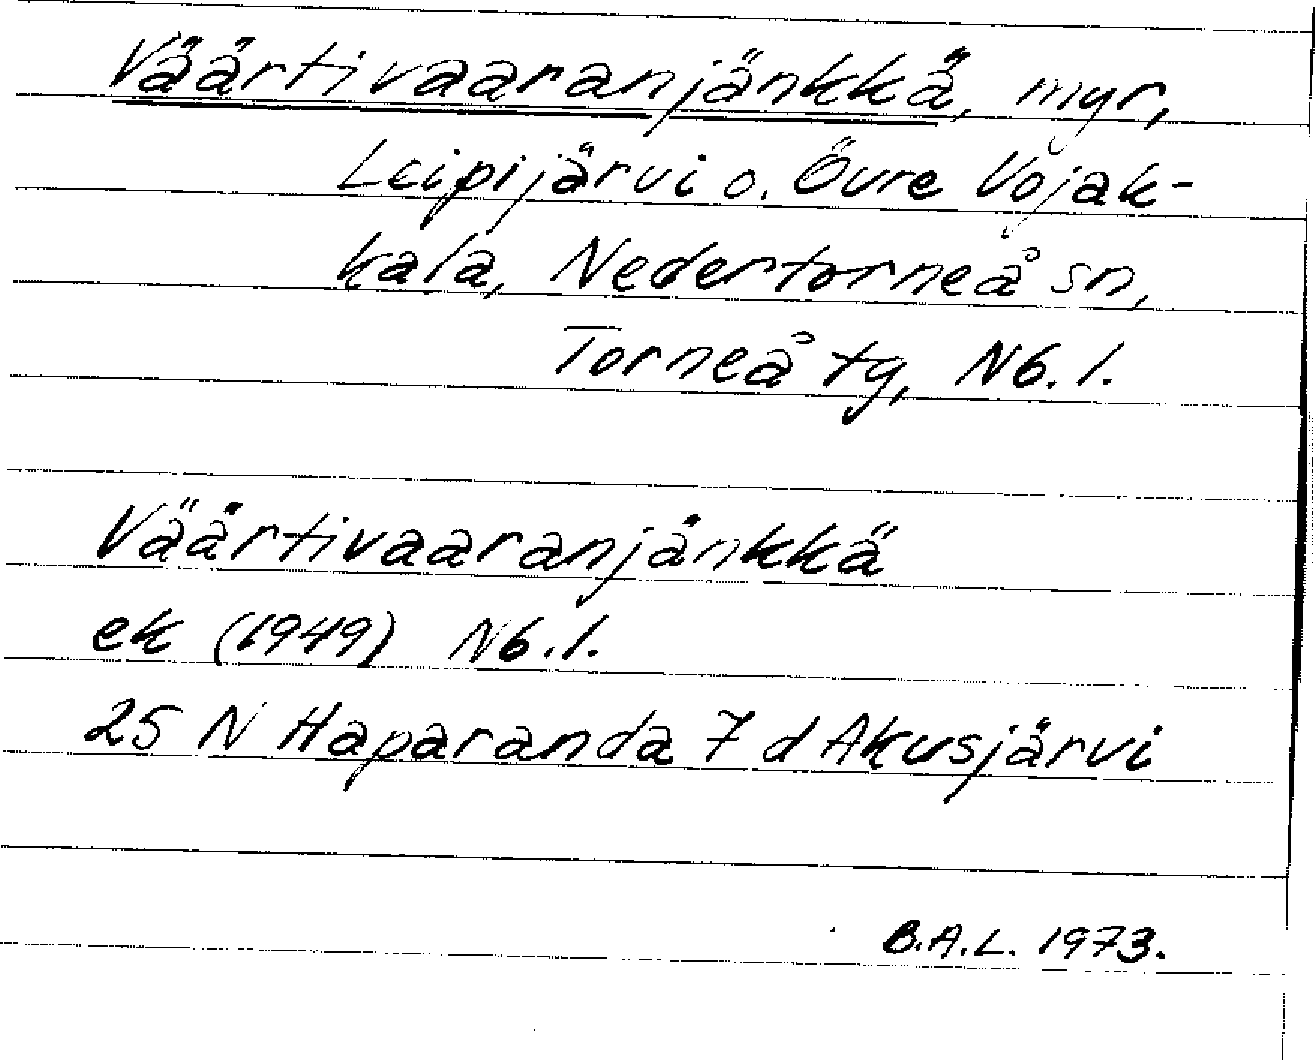 Väärtivaaranjänkkä, myr,
Leipijärvi o. Övre Vojak-
kala, Nedertorneå sn,
Torneå tg, Nb. l.
Väärtivaaranjänkkä
ek (1949) Nb. l.
25 N Haparanda 7 d Akusjärvi
B.A.L. 1973.